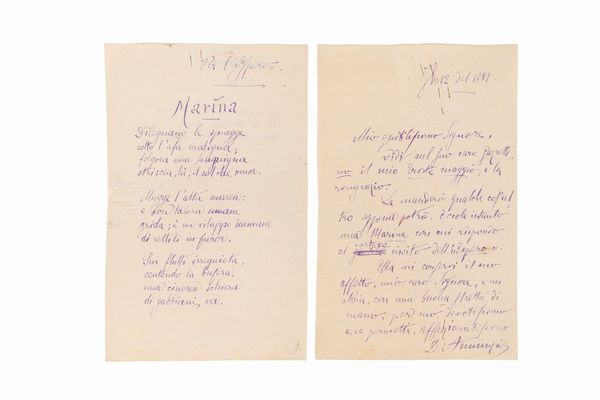 Per l'Espero.
Marina
Dileguano le spiagge
sotto l'afa maligna;
folgora una sanguigna
striscia, là, il sol che muor.
Mugge l'alta marea:
e son talora umane
grida; è un viluppo immane
di rettili in furor.
Sui flutti irrequieta,
sentendo la bufera
una cinerea schiera
di gabbiani, via.
12 del 1881
Mio gentilissimo Signore,
vidi nel suo caro
no il mio maggio, e la
ringrazio.
Le manderò qualche cos'al
tro appena potrò. Eccole intanto
una Marina, con cui rispondo
al cortese invito dell'Espero.
Ella mi conservi il suo
affetto, mio caro Signore, e mi
abbia, con una buona stretta di
mano, per suo devotissimo
e, se permette, affezionatissimo
D'Annunzio